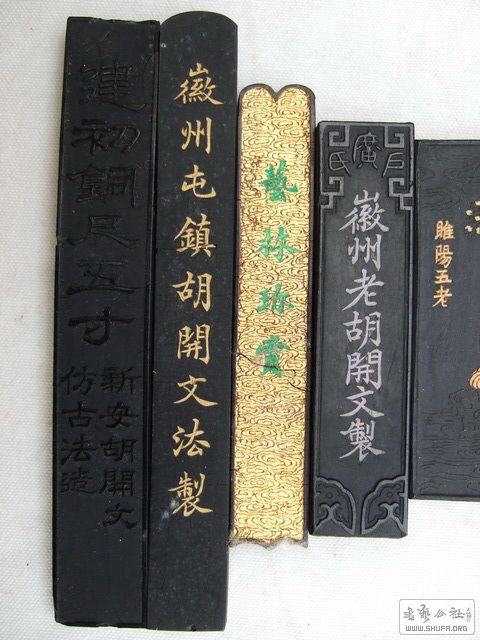 建初銅尺五寸
新安胡開文
仿古法造
徽州屯鎮胡開文法製
藝林珍賞
廣戶氏
徽州老胡開文製
睢陽五老
書藝公社
WWW.SHUFA.ORG